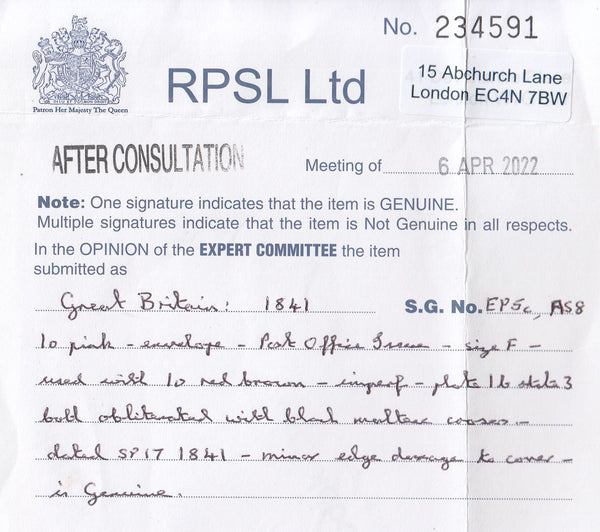 No. 234591
RPSL Ltd
15 Abchurch Lane
London EC4N 7BW
Patron Her Majesty The Queen
AFTER CONSULTATION
Meeting of 6 APR 2022
Note: One signature indicates that the item is GENUINE.
Multiple signatures indicate that the item is Not Genuine in all respects.
In the OPINION of the EXPERT COMMITTEE the item
submitted as
Great Britain: 1841 S.G. No. EP5c, AS8
1D pink - envelope - Post Office Issue - size F -
used with 1D red brown - imperf - plate 1b state 3
both obliterated with black maltese crosses -
dated SP 17 1841 - minor edge damage to cover -
is Genuine.